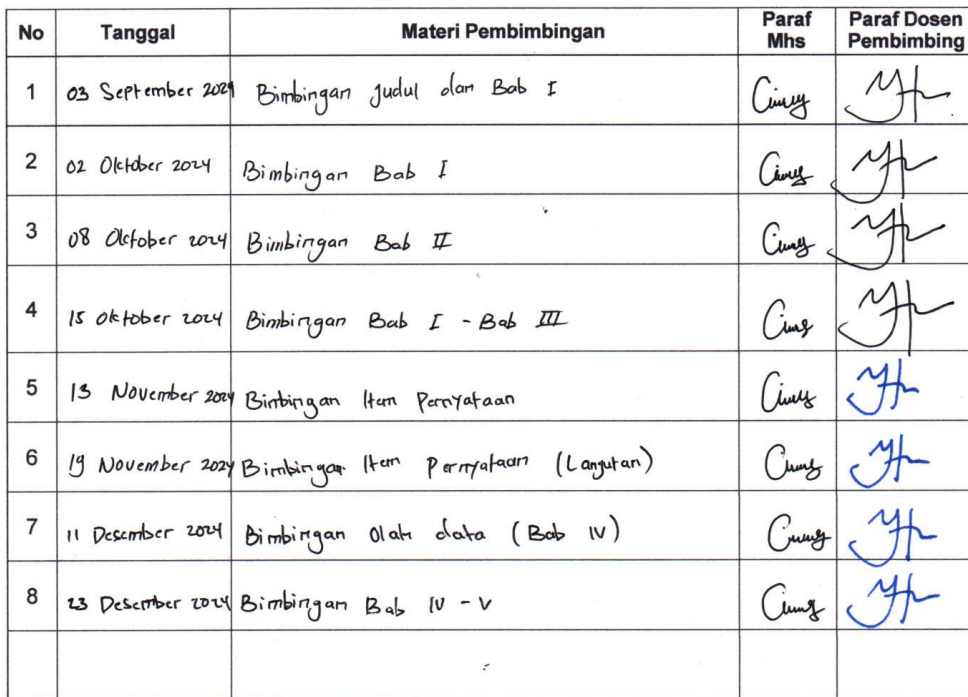 No Tanggal Materi Pembimbingan Paraf Mhs Paraf Dosen Pembimbing
1 03 September 2024 Bimbingan Judul dan Bab I
2 02 Oktober 2024 Bimbingan Bab I
3 08 Oktober 2024 Bimbingan Bab II
4 15 Oktober 2024 Bimbingan Bab I - Bab III
5 13 November 2024 Bimbingan Item Pernyataan
6 19 November 2024 Bimbingan Item Pernyataan (Lanjutan)
7 11 Desember 2024 Bimbingan Olah data (Bab IV)
8 23 Desember 2024 Bimbingan Bab IV - V